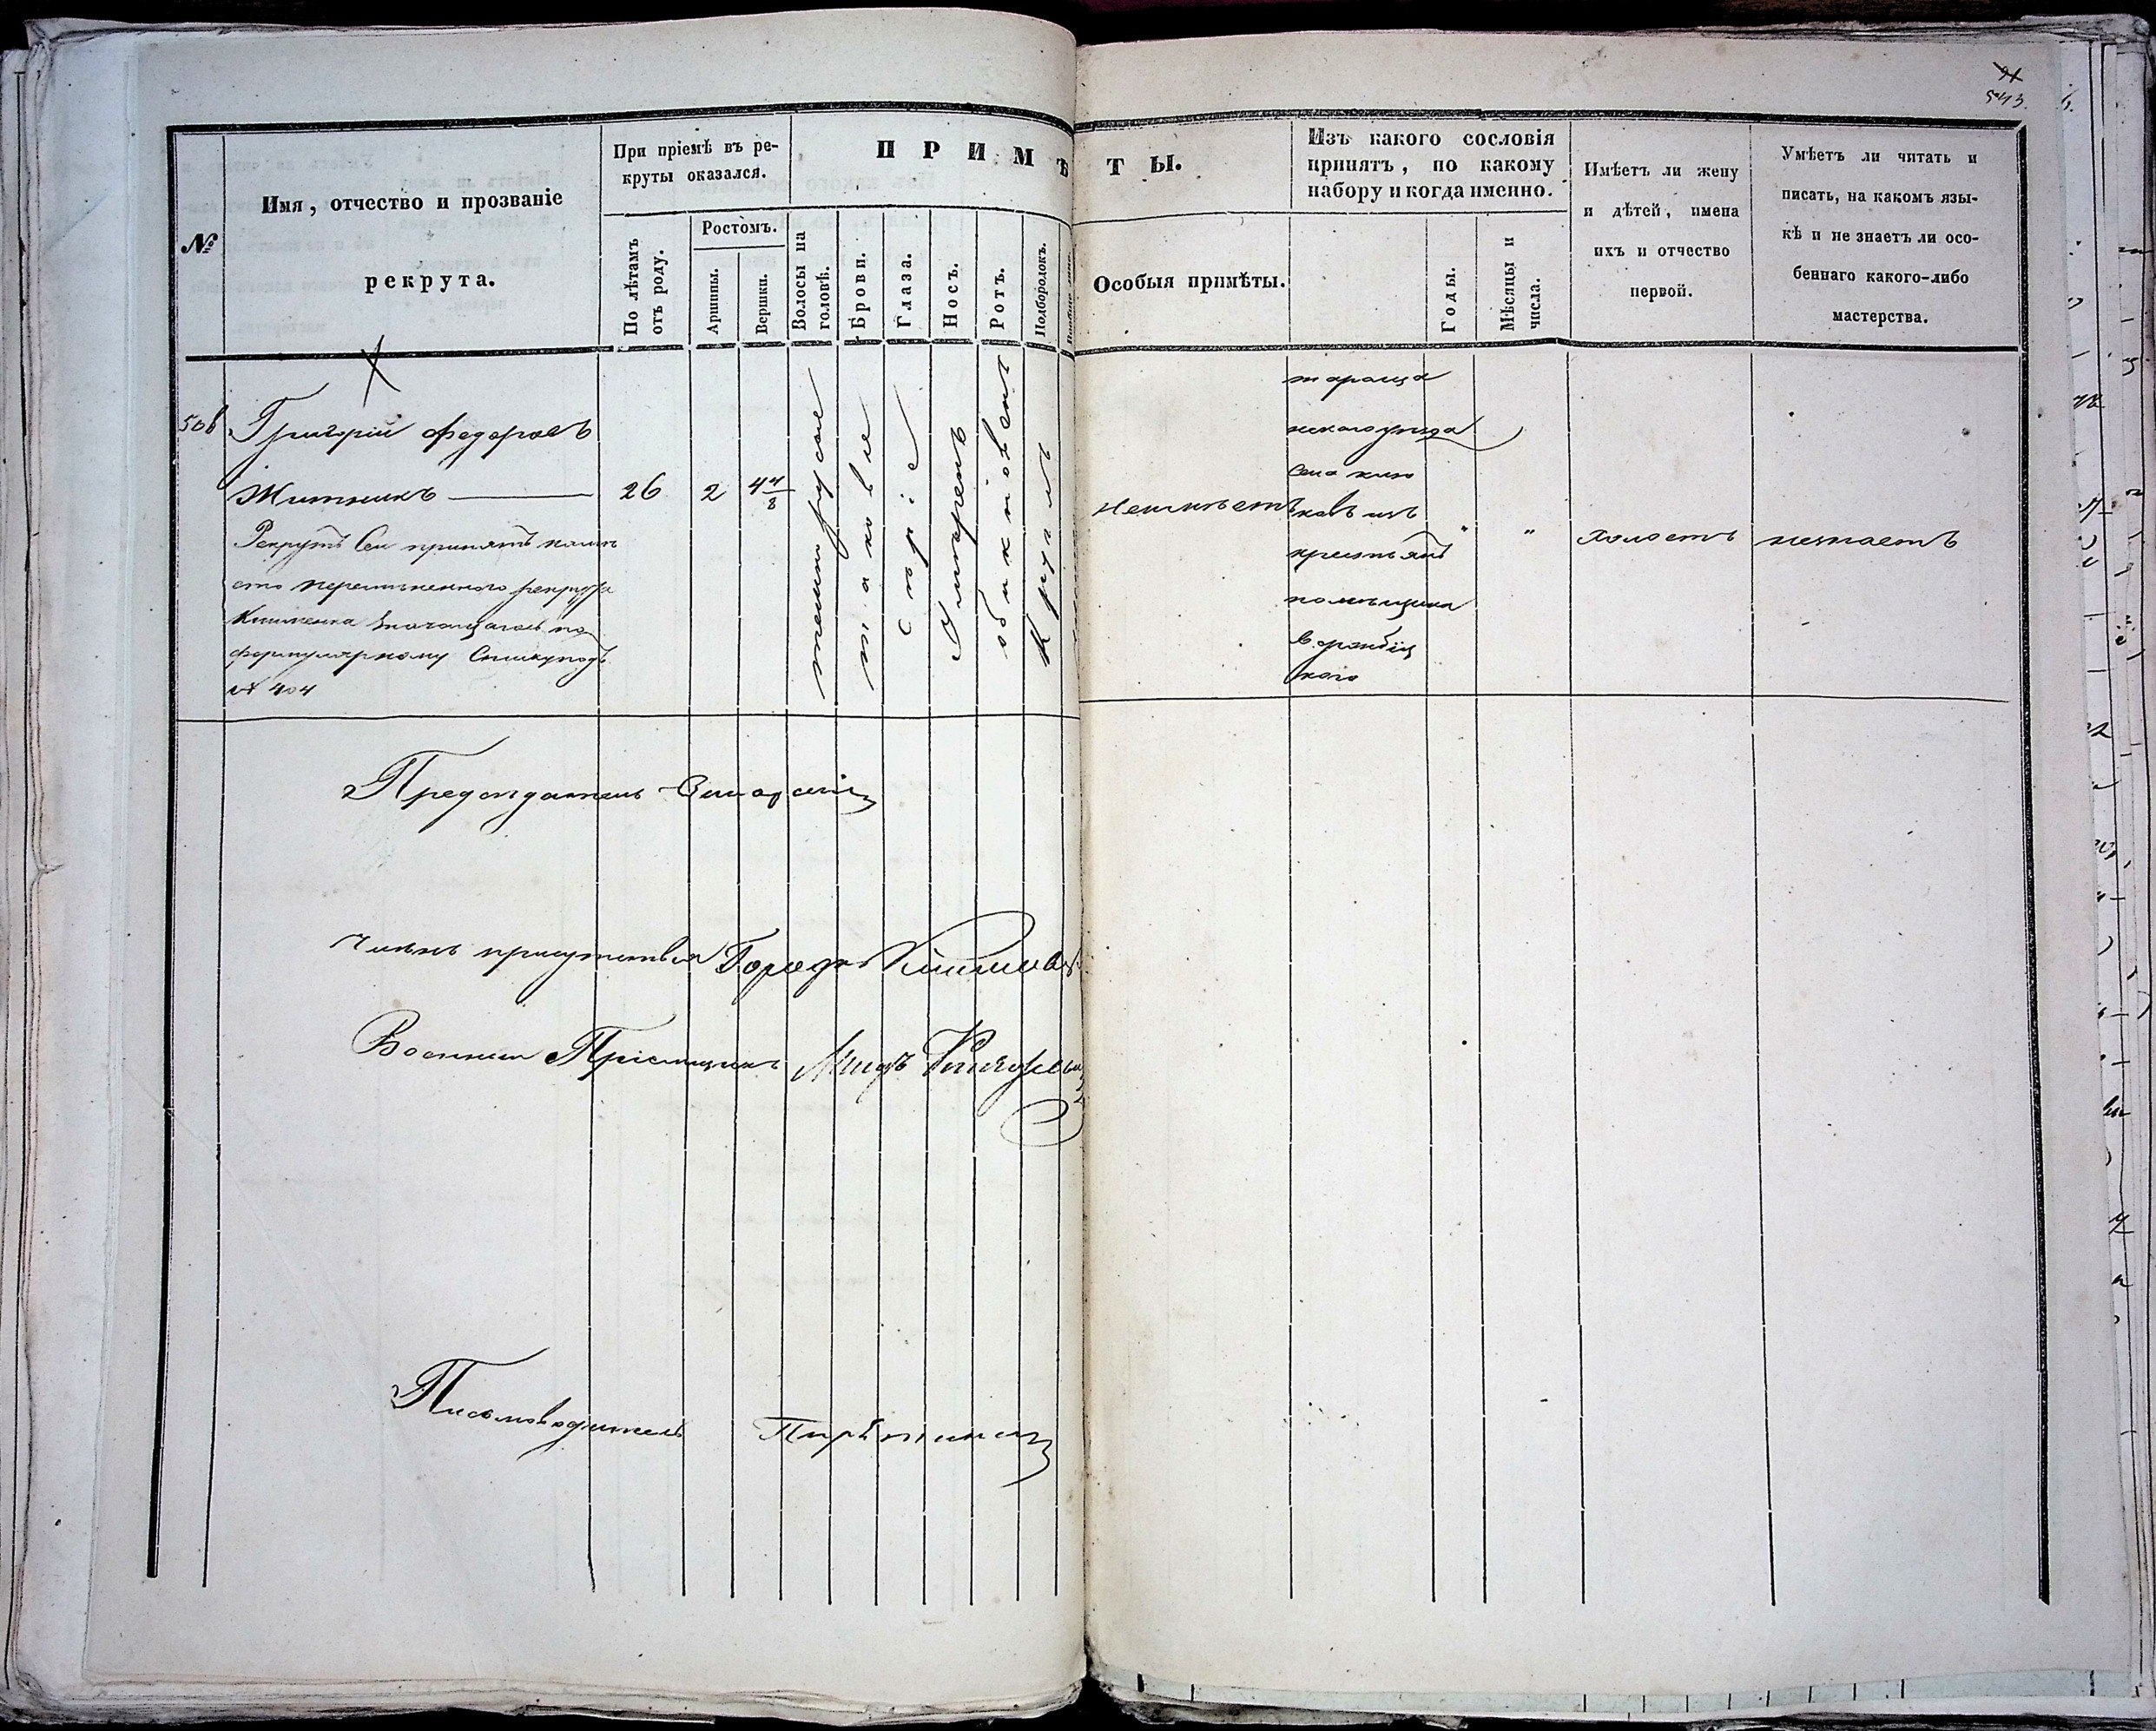 543
№
Имя, отчество и прозваніе
рекрута.
При пріемѣ въ ре-
круты оказался.
По лѣтамъ
отъ роду.
Ростомъ.
Аршины.
Вершки.
ПРИМѢТЫ.
Волосы на
головѣ.
Брови.
Глаза.
Носъ.
Ротъ.
Подбородокъ.
Особыя примѣты.
Изъ какого сословія
принятъ, по какому
набору и когда именно.
Годы.
Мѣсяцы и
числа.
Имѣетъ ли жену
и дѣтей, имена
ихъ и отчество
первой.
Умѣетъ ли читать и
писать, на какомъ язы-
кѣ и не знаетъ ли осо-
беннаго какого-либо
мастерства.
506
Григорій Федоровъ
Житникъ
Рекрутъ сей принятъ намѣ
сто перемѣненного рекрута
Клименка значащагось по
формулярному Списку подъ
№ 404
26
2
4 4/8
темнорусые
таковые
сѣрые
Умѣренъ
обикновенъ
Круглъ
Неимѣетъ
тараща
нскаго уѣзда
села
изъ
крестьянъ
помѣщика
"
"
холостъ
незнаетъ
Предсѣдатель
Членъ присутствія
Военный Пріемщикъ
Письмоводитель